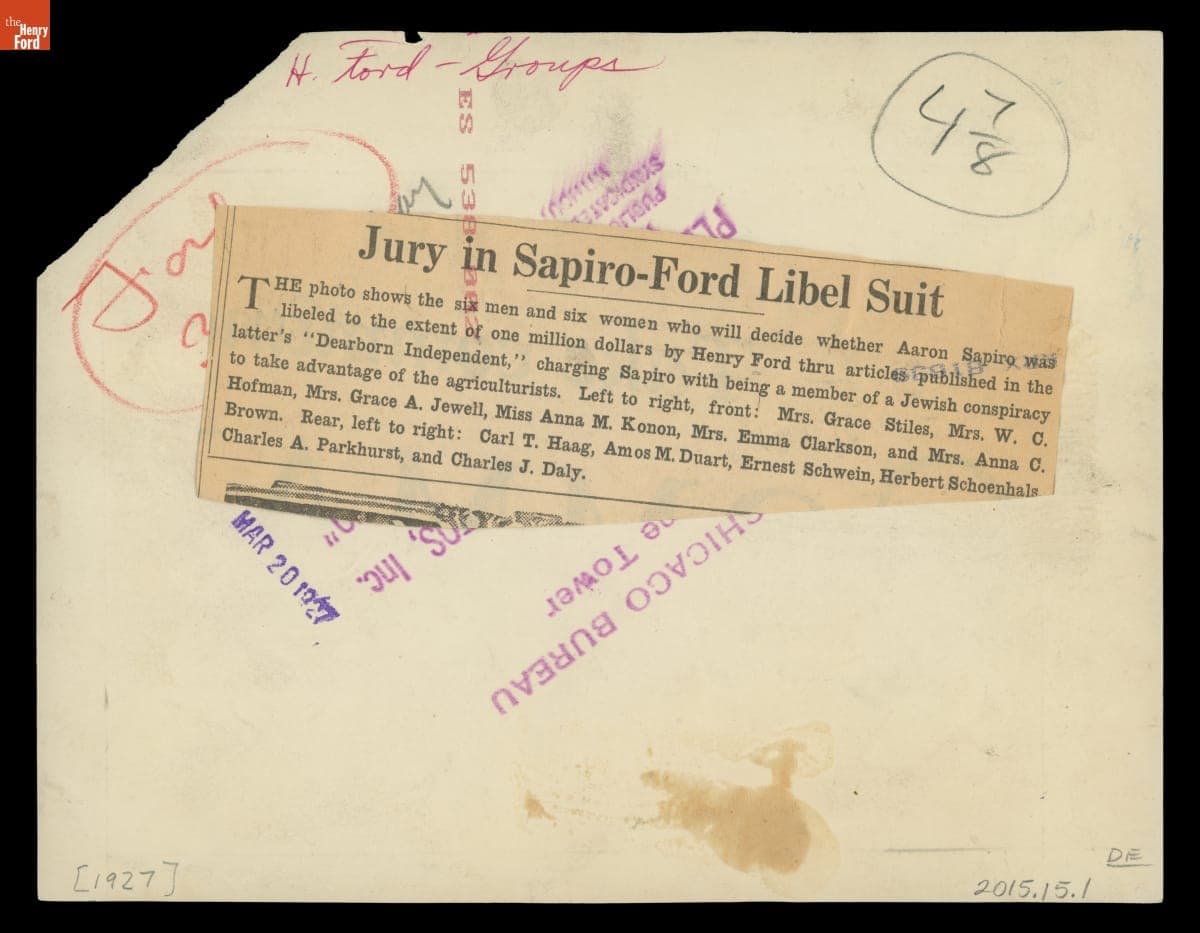 the
Henry
Ford
H. Ford - Groups
4 7/8
PUBLIC
SYNDICATE
Ford
Jury in Sapiro-Ford Libel Suit
THE photo shows the six men and six women who will decide whether Aaron Sapiro was
libeled to the extent of one million dollars by Henry Ford thru articles published in the
latter's "Dearborn Independent," charging Sapiro with being a member of a Jewish conspiracy
to take advantage of the agriculturists. Left to right, front: Mrs. Grace Stiles, Mrs. W. C.
Hofman, Mrs. Grace A. Jewell, Miss Anna M. Konon, Mrs. Emma Clarkson, and Mrs. Anna C.
Brown. Rear, left to right: Carl T. Haag, Amos M. Duart, Ernest Schwein, Herbert Schoenhals
Charles A. Parkhurst, and Charles J. Daly.
MAR 20 1927
Inc.
Tower
CHICAGO BUREAU
[1927]
DE
2015.15.1